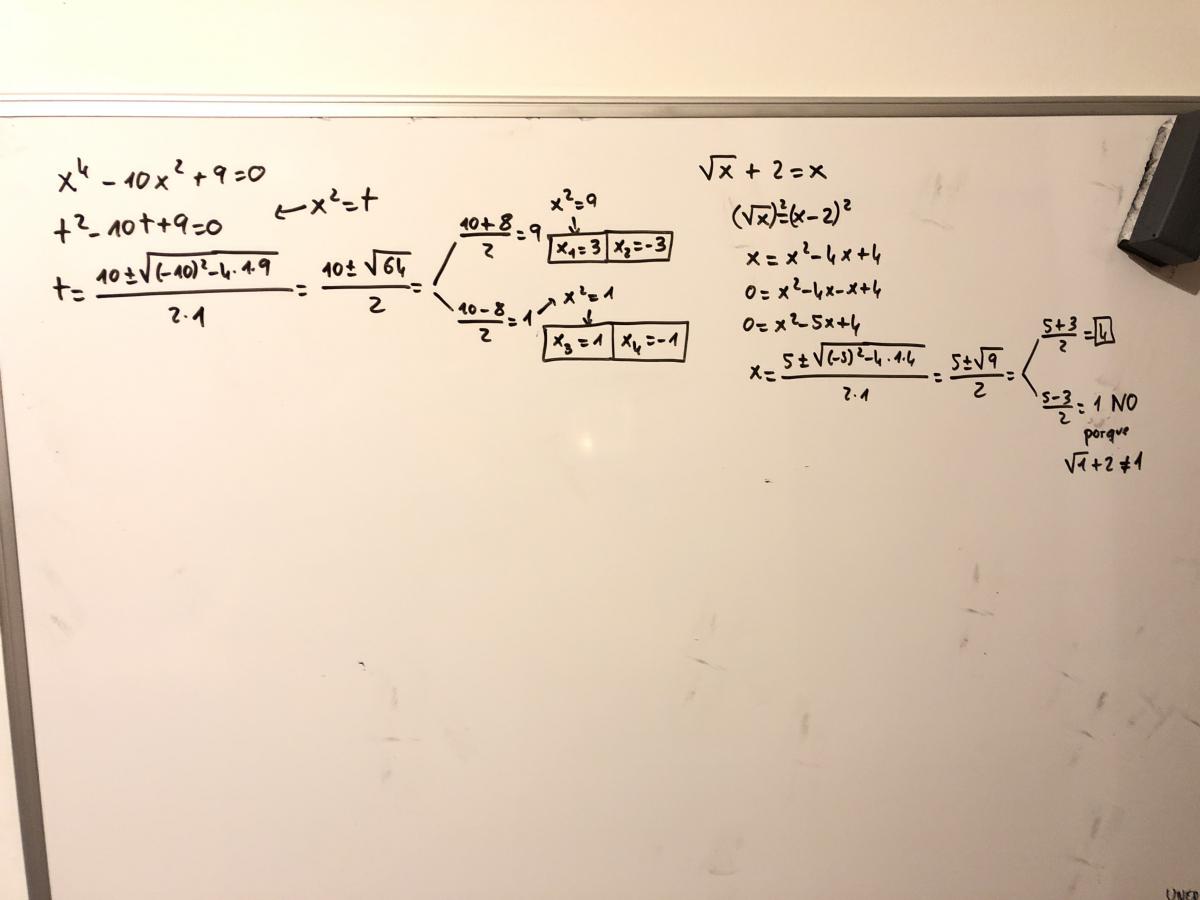 x⁴ - 10x² + 9 = 0
t² - 10t + 9 = 0 ← x² = t
t = (10 ± √((-10)² - 4·1·9))/(2·1) = (10 ± √64)/2 =
(10 + 8)/2 = 9
x² = 9
↓
x₁ = 3 | x₂ = -3
(10 - 8)/2 = 1 → x² = 1
↓
x₃ = 1 | x₄ = -1
√x + 2 = x
(√x)² = (x - 2)²
x = x² - 4x + 4
0 = x² - 4x - x + 4
0 = x² - 5x + 4
x = (5 ± √((-5)² - 4·1·4))/(2·1) = (5 ± √9)/2 =
(5 + 3)/2 = 4
(5 - 3)/2 = 1 NO
porque
√1 + 2 ≠ 1